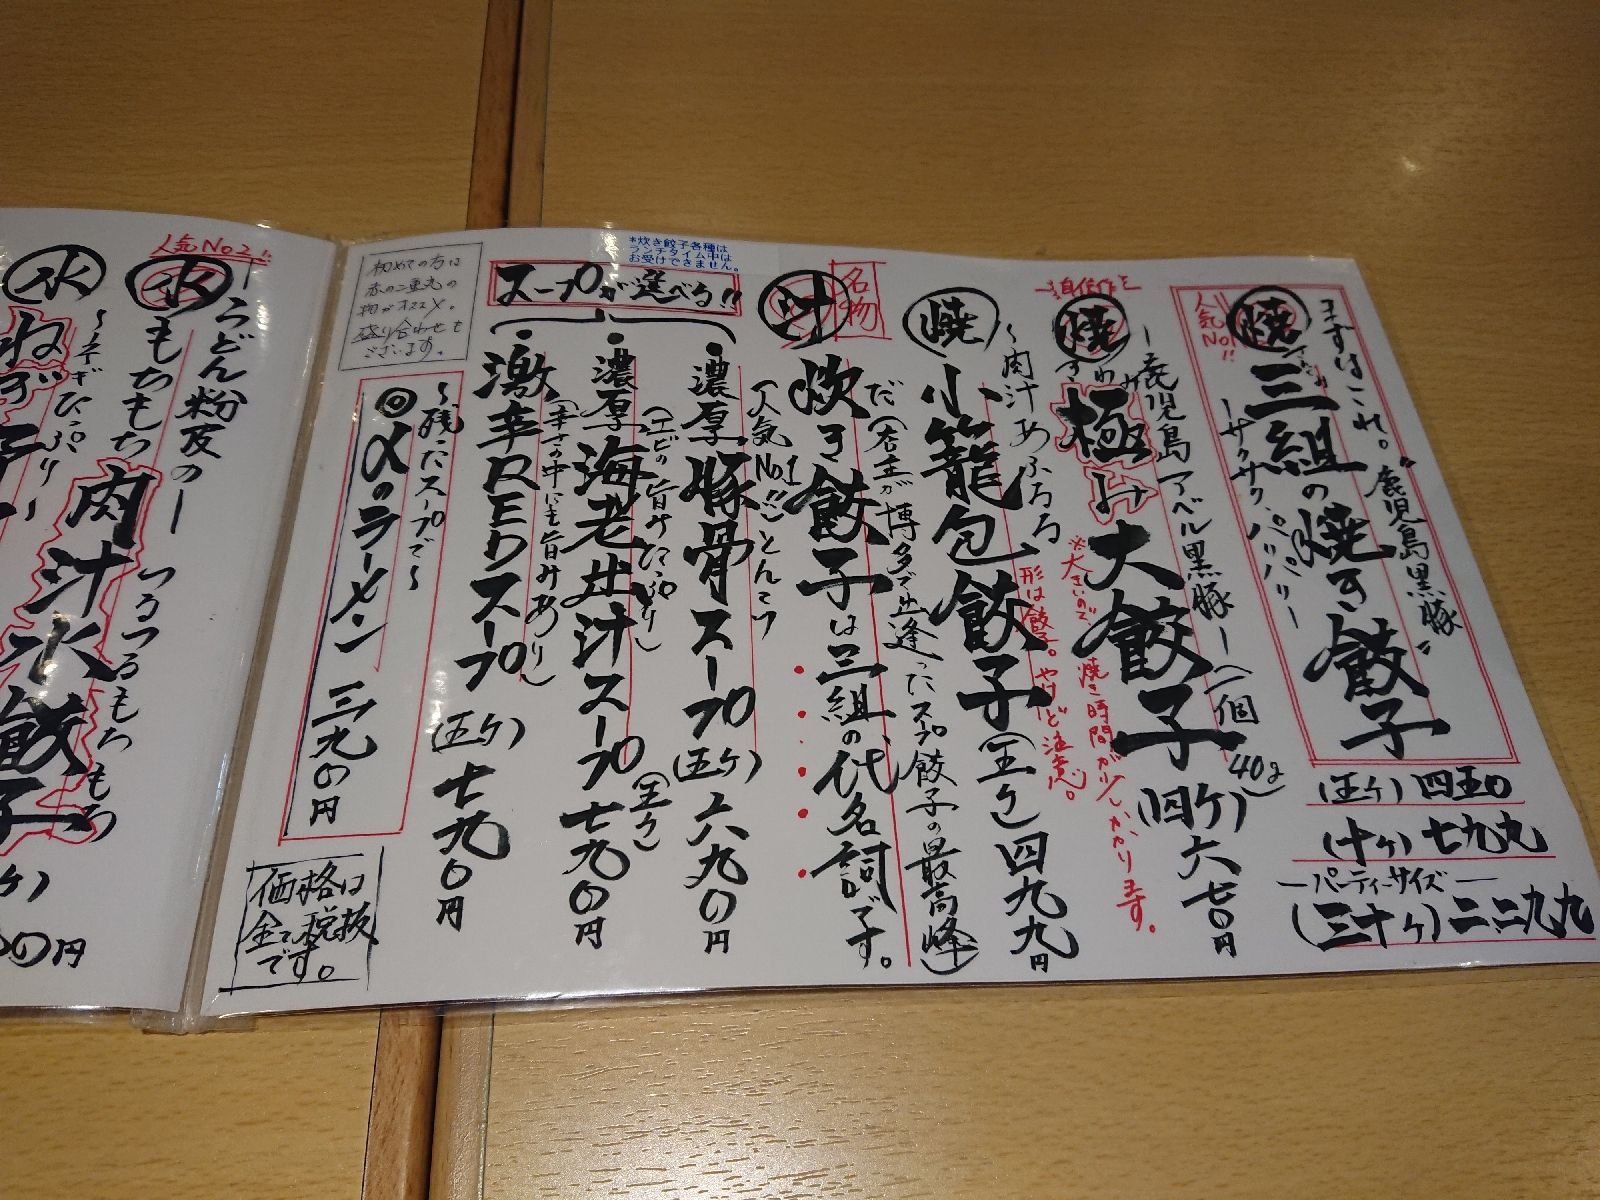 まずはこれ。"鹿児島黒豚"
人気No1!!
焼
三組の焼き餃子
ーサクサク、パリパリー
(五ケ) 四五0
(十ケ) 七九九
ーパーティーサイズー
(三十ケ) 二、二九九
焼
ー鹿児島アベル黒豚ー(一個40g)
きわみ
極み大餃子(四ケ)六七0円
※大きいので、焼き時間が少しかかります。
形は餃子。やけど注意。
焼
〜肉汁あふるる
小籠包餃子(五ケ)四九九円
名物
汁
炊き餃子は三組の代名詞です。
(店主が博多で出逢ったスープ餃子の最高峰)
*炊き餃子各種は
ランチタイム中は
お受けできません。
スープが選べる!!
人気No1!!
・濃厚豚骨スープ(五ケ)六九0円
・濃厚海老出汁スープ(五ケ)七九0円
(エビの旨みたっぷり)
・激辛REDスープ(五ケ)七九0円
(辛さの中にも旨みあり)
〜残ったスープで〜
◎〆のラーメン 三九0円
初めての方は
赤の二重丸の
物がオススメ。
盛り合わせも
ございます。
価格は
全て税抜
です。
人気No2!!
水
ーうどん粉皮のー
もちもち肉汁水餃子
つるつるもちもち
水
〜ネギたっぷり〜
ねぎ